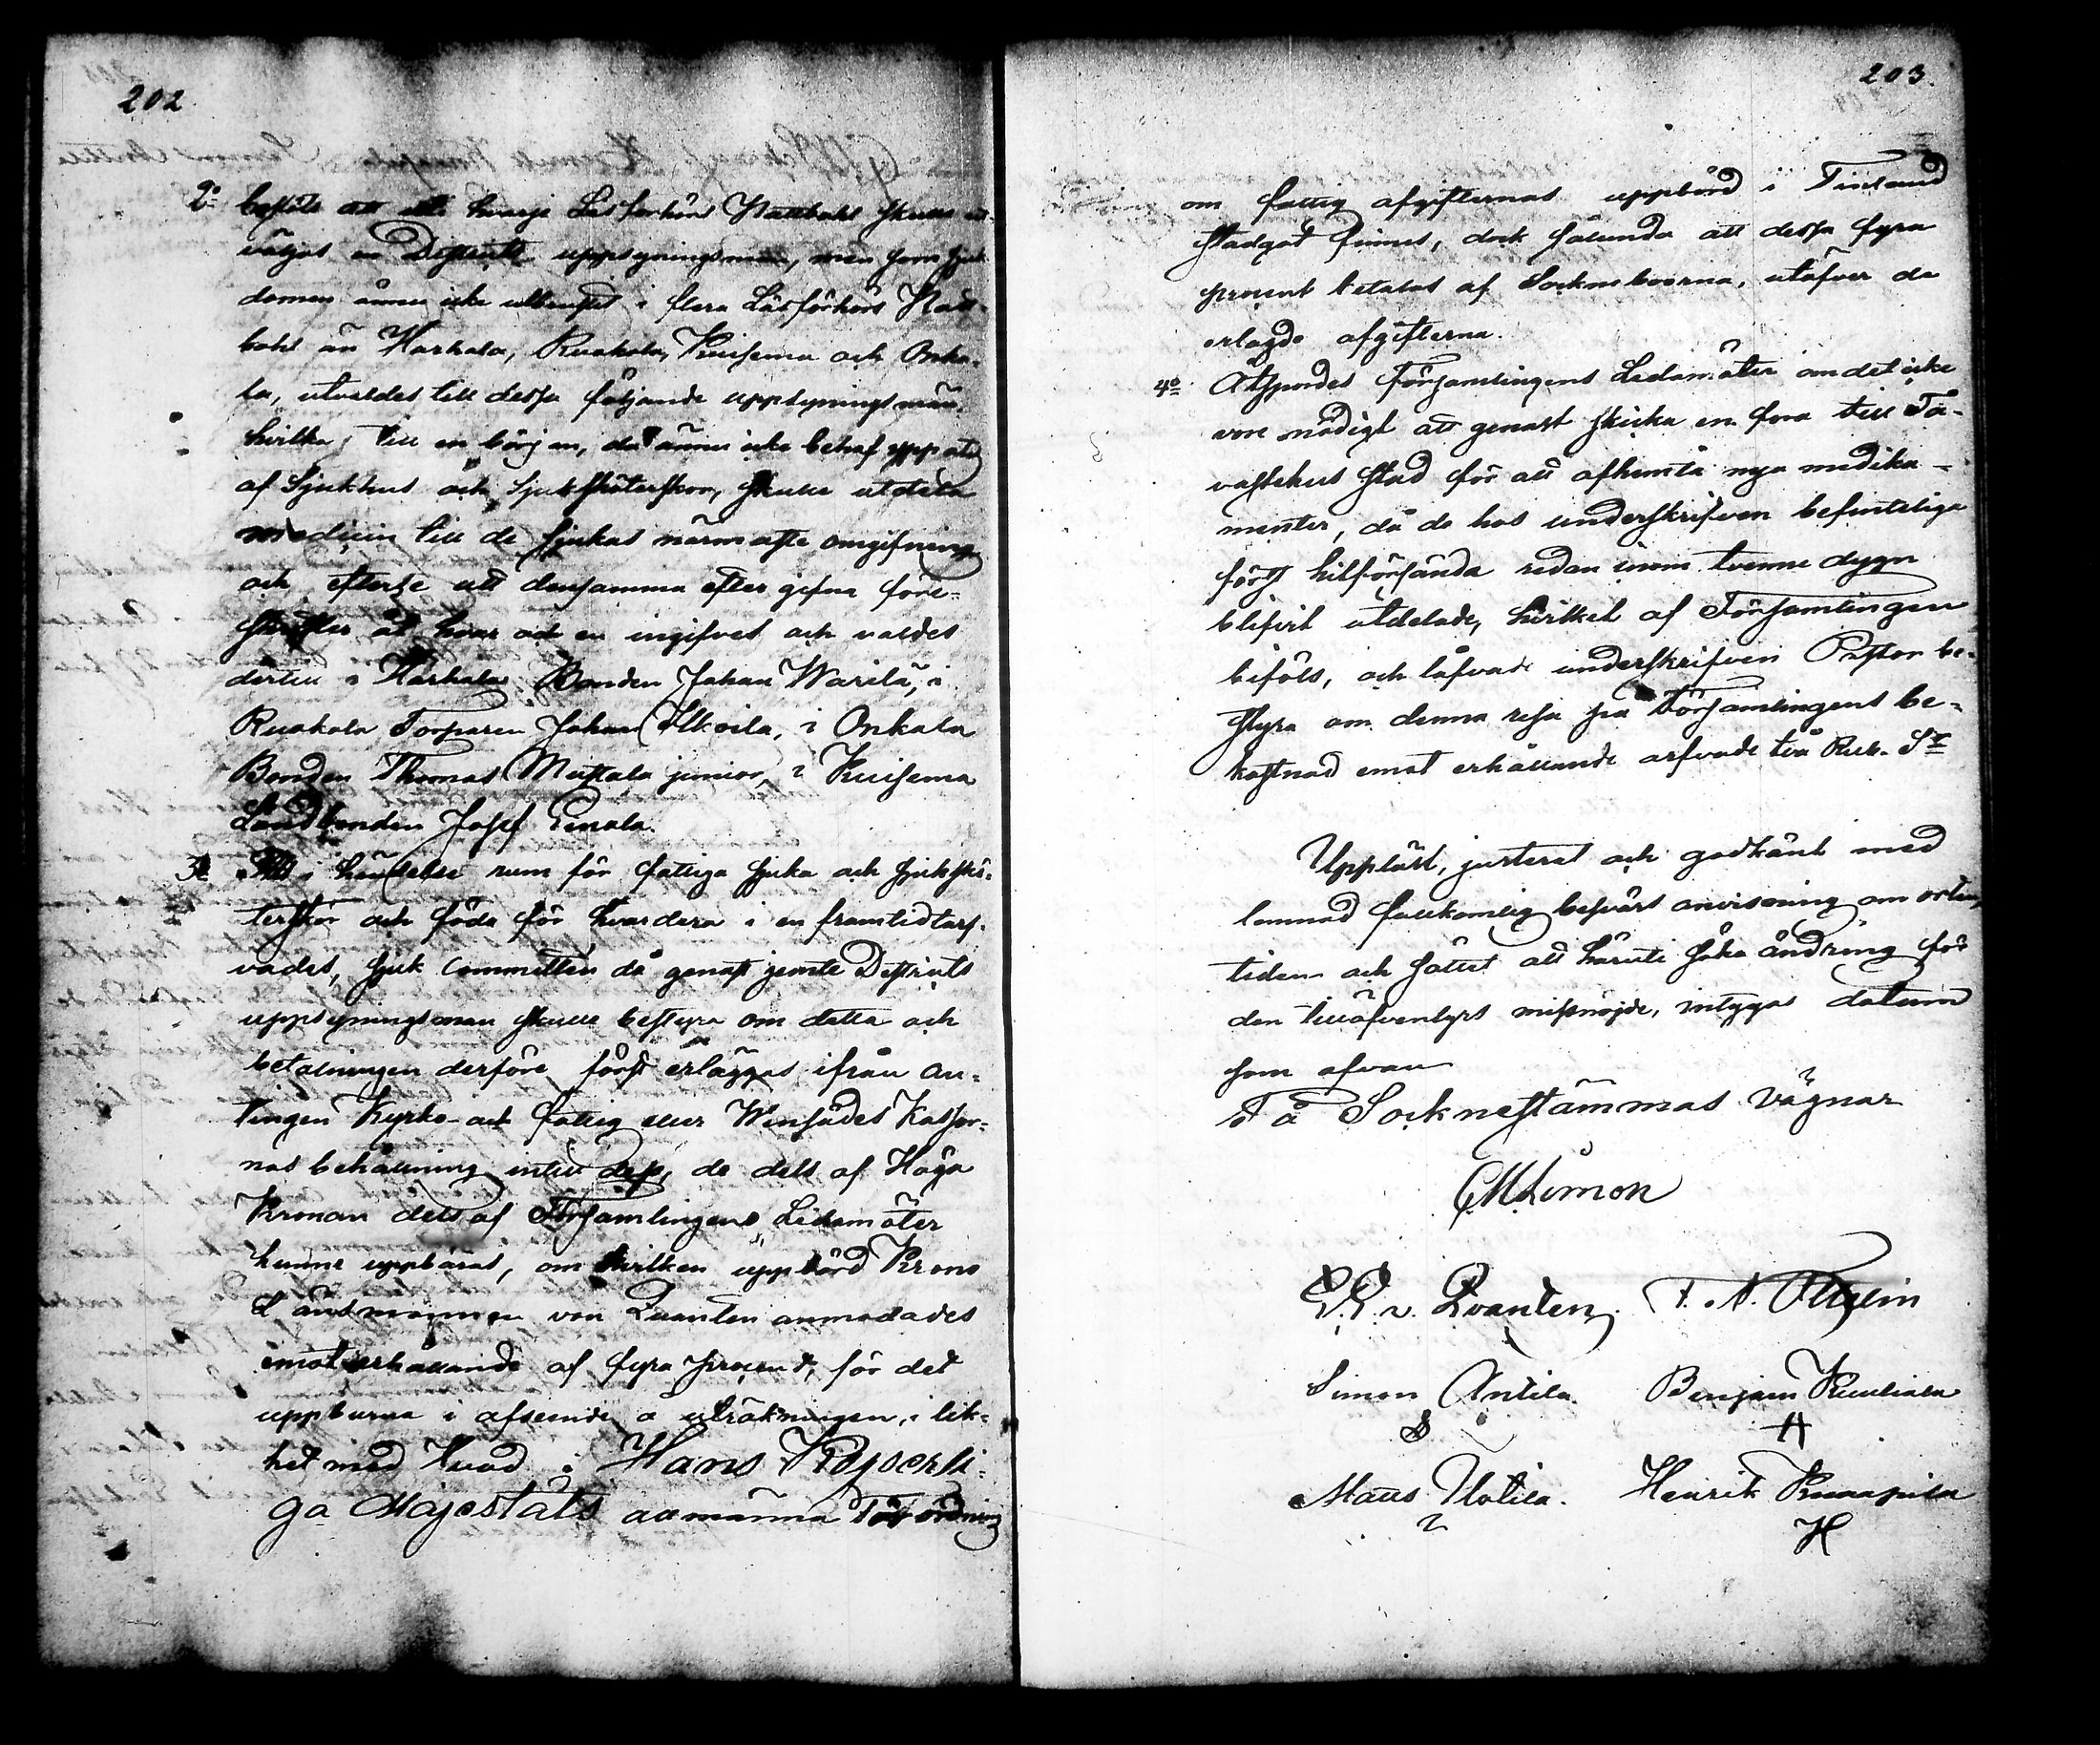 202
2o beslöts att uti hvarje Läsförhörs Stadbohl skulle ut-
väljas en Districts uppsyningsman, men som sjuk
domen ännu icke utbrustit i flera Läsförhörs Stad-
bohl än Harhala, Ruokola, Kuisema och Onka-
la, utvaldes till dessa följande uppsyningsmän
hvilka, till en början, då ännu icke behof uppstod
af Sjukhus och Sjuksköterskor, skulle utdela
medicin till de sjukas närmaste omgifning
och efterse att densamma efter gifna före-
skrifter åt hvar och en ingifves och valdes
dertill i Harhala Bonden Johan Warila, i
Ruokola Torparen Johan Ilkoila, i Onkala
Bonden Thomas Mustala junior, i Kuisema
Landbonden Josef Einola.
3o Att i händelse rum för fattiga sjuka och sjukskö-
terskor och föda för hvardera i en framtid tarf-
vades, sjuk Committén då genast jemte Districts
uppsyningsman skulle bestyra om detta och
betalningen derföre först erläggas ifrån an-
tingen Kyrko- och fattig eller Winsädes Kassor-
nas behållning intill dess, de dels af Höga
Kronan dels af Församlingens Ledamöter
hunne uppbäras, om hvilken uppbörd Krono
Länsmannen von Qvanten anmodades
emot erhållande af fyra procent, för det
uppburna i afseende å uträkningen, i lik-
het med hvad i Hans Kejserli-
ga Majestäts allmänna Förordning
203.
om fattig afgifternas uppbörd i Finland
stadgat finnes, dock sålunda att dessa fyra
procent betalas af Sockneboerna, utöfver de
erlagde afgifterna.
4o Åtspordes Församlingens Ledamöter om det icke
vore nödigt att genast skicka en fora till Ta-
vastehus stad för att afhemta nya medika-
menter, då de hos underskrifven befinteliga
först hitförsända redan inom tvenne dygn
blifvit utdelade, hvilket af Församlingen
bifölls, och låfvade underskrifven Pastor be-
styra om denna resa på Församlingens be-
kostnad emot erhållande arfvode två Rub. Sr
Uppläst, justerat och godkänt med
lemnad fullkomlig besvärs anvisning om orten,
tiden och sättet att häruti söka ändring för
den till äfventyrs missnöjde, intygas datum
som ofvan
På Socknestämmas vägnar
C M Limon
v. Qvanten
Simon Antila. Benjam Kuuliala
Matts Ylotila. Henrik Kuurapila
H